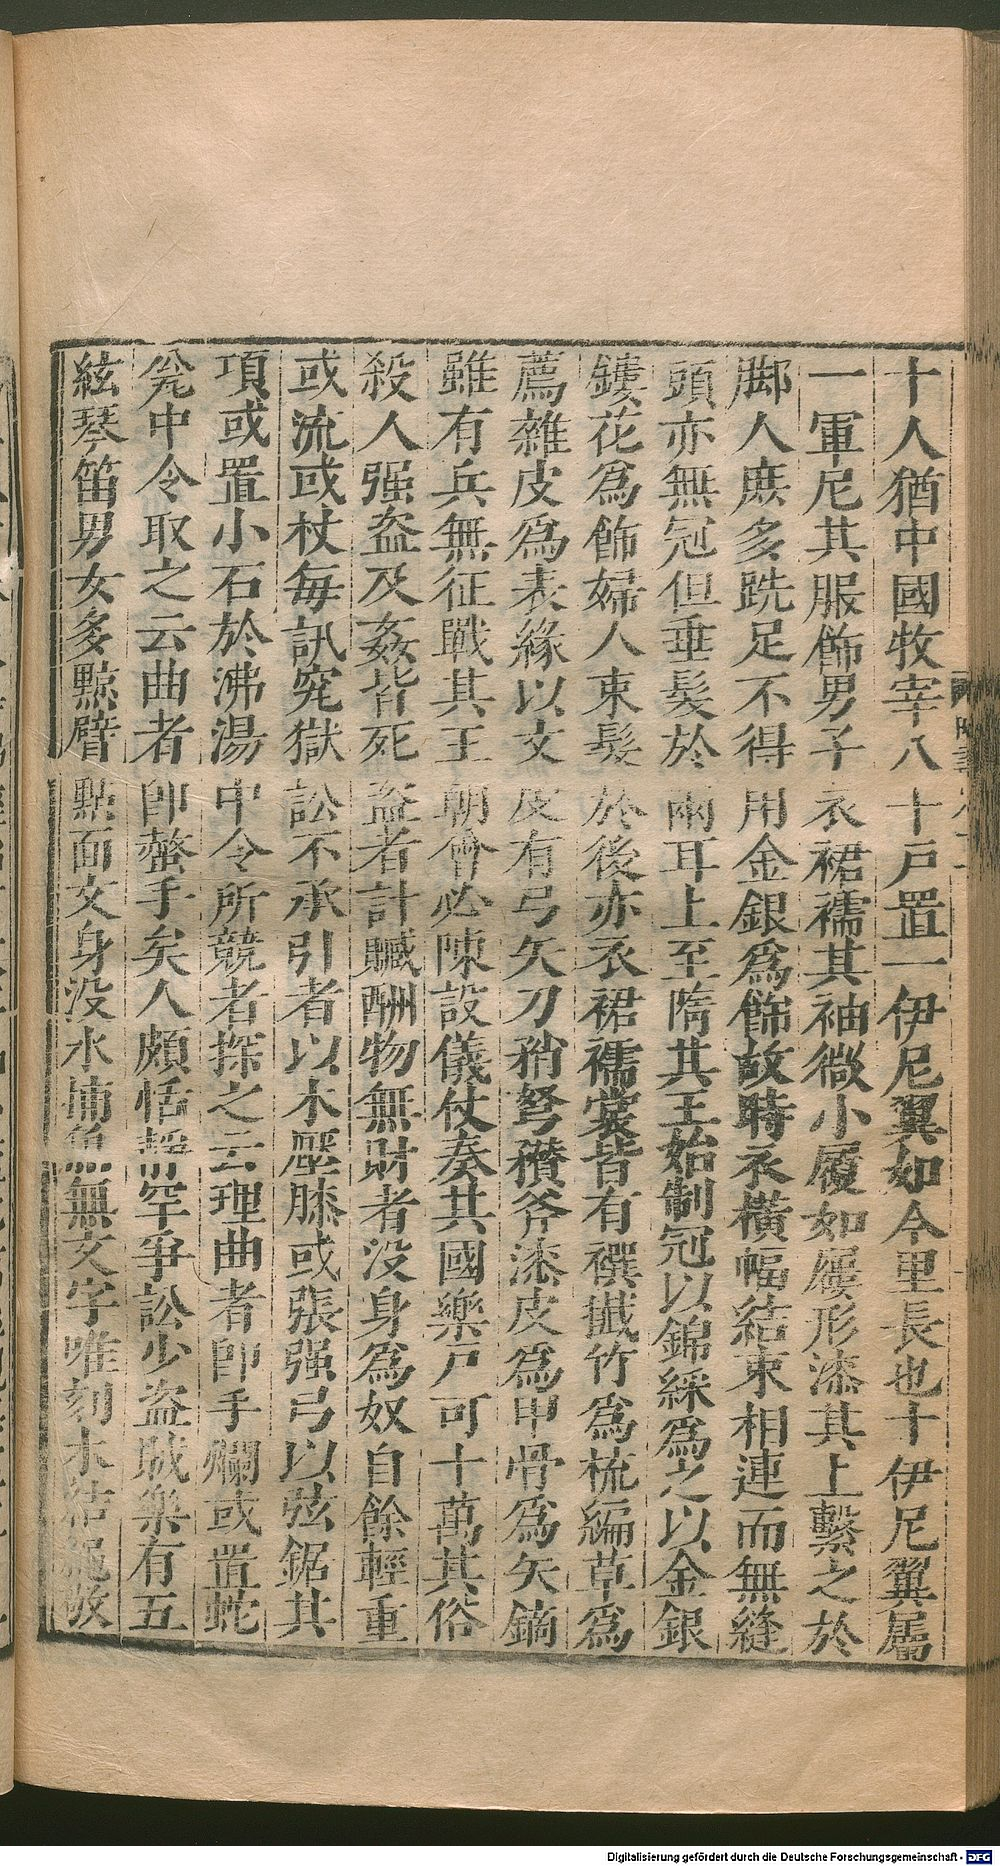 十人猶中國牧宰八十戸置一伊尼翼如今里長也十伊尼翼屬
一軍尼其服飾男子衣裙襦其袖微小履如屨形漆其上繫之於
脚人庶多跣足不得用金銀爲飾故時衣橫幅結束相連而無縫
頭亦無冠但垂髮於兩耳上至隋其王始制冠以錦綵爲之以金銀
鏤花爲飾婦人束髮於後亦衣裙襦裳皆有襈攕竹爲梳編草爲
薦雜皮爲表緣以文皮有弓矢刀矟弩䂎斧漆皮爲甲骨爲矢鏑
雖有兵無征戰其王朝會必陳設儀仗奏其國樂戸可十萬其俗
殺人强盗及姦皆死盗者計贓酬物無財者没身爲奴自餘輕重
或流或杖每訊究獄訟不承引者以木壓膝或張强弓以弦鋸其
項或置小石於沸湯中令所競者探之云理曲者卽手爛或置蛇
瓮中令取之云曲者卽螫手矣人頗恬靜罕爭訟少盗賊樂有五
絃琴笛男女多黥臂點面文身没水捕魚無文字唯刻木結繩敬
Digitalisierung gefördert durch die Deutsche Forschungsgemeinschaft - DFG